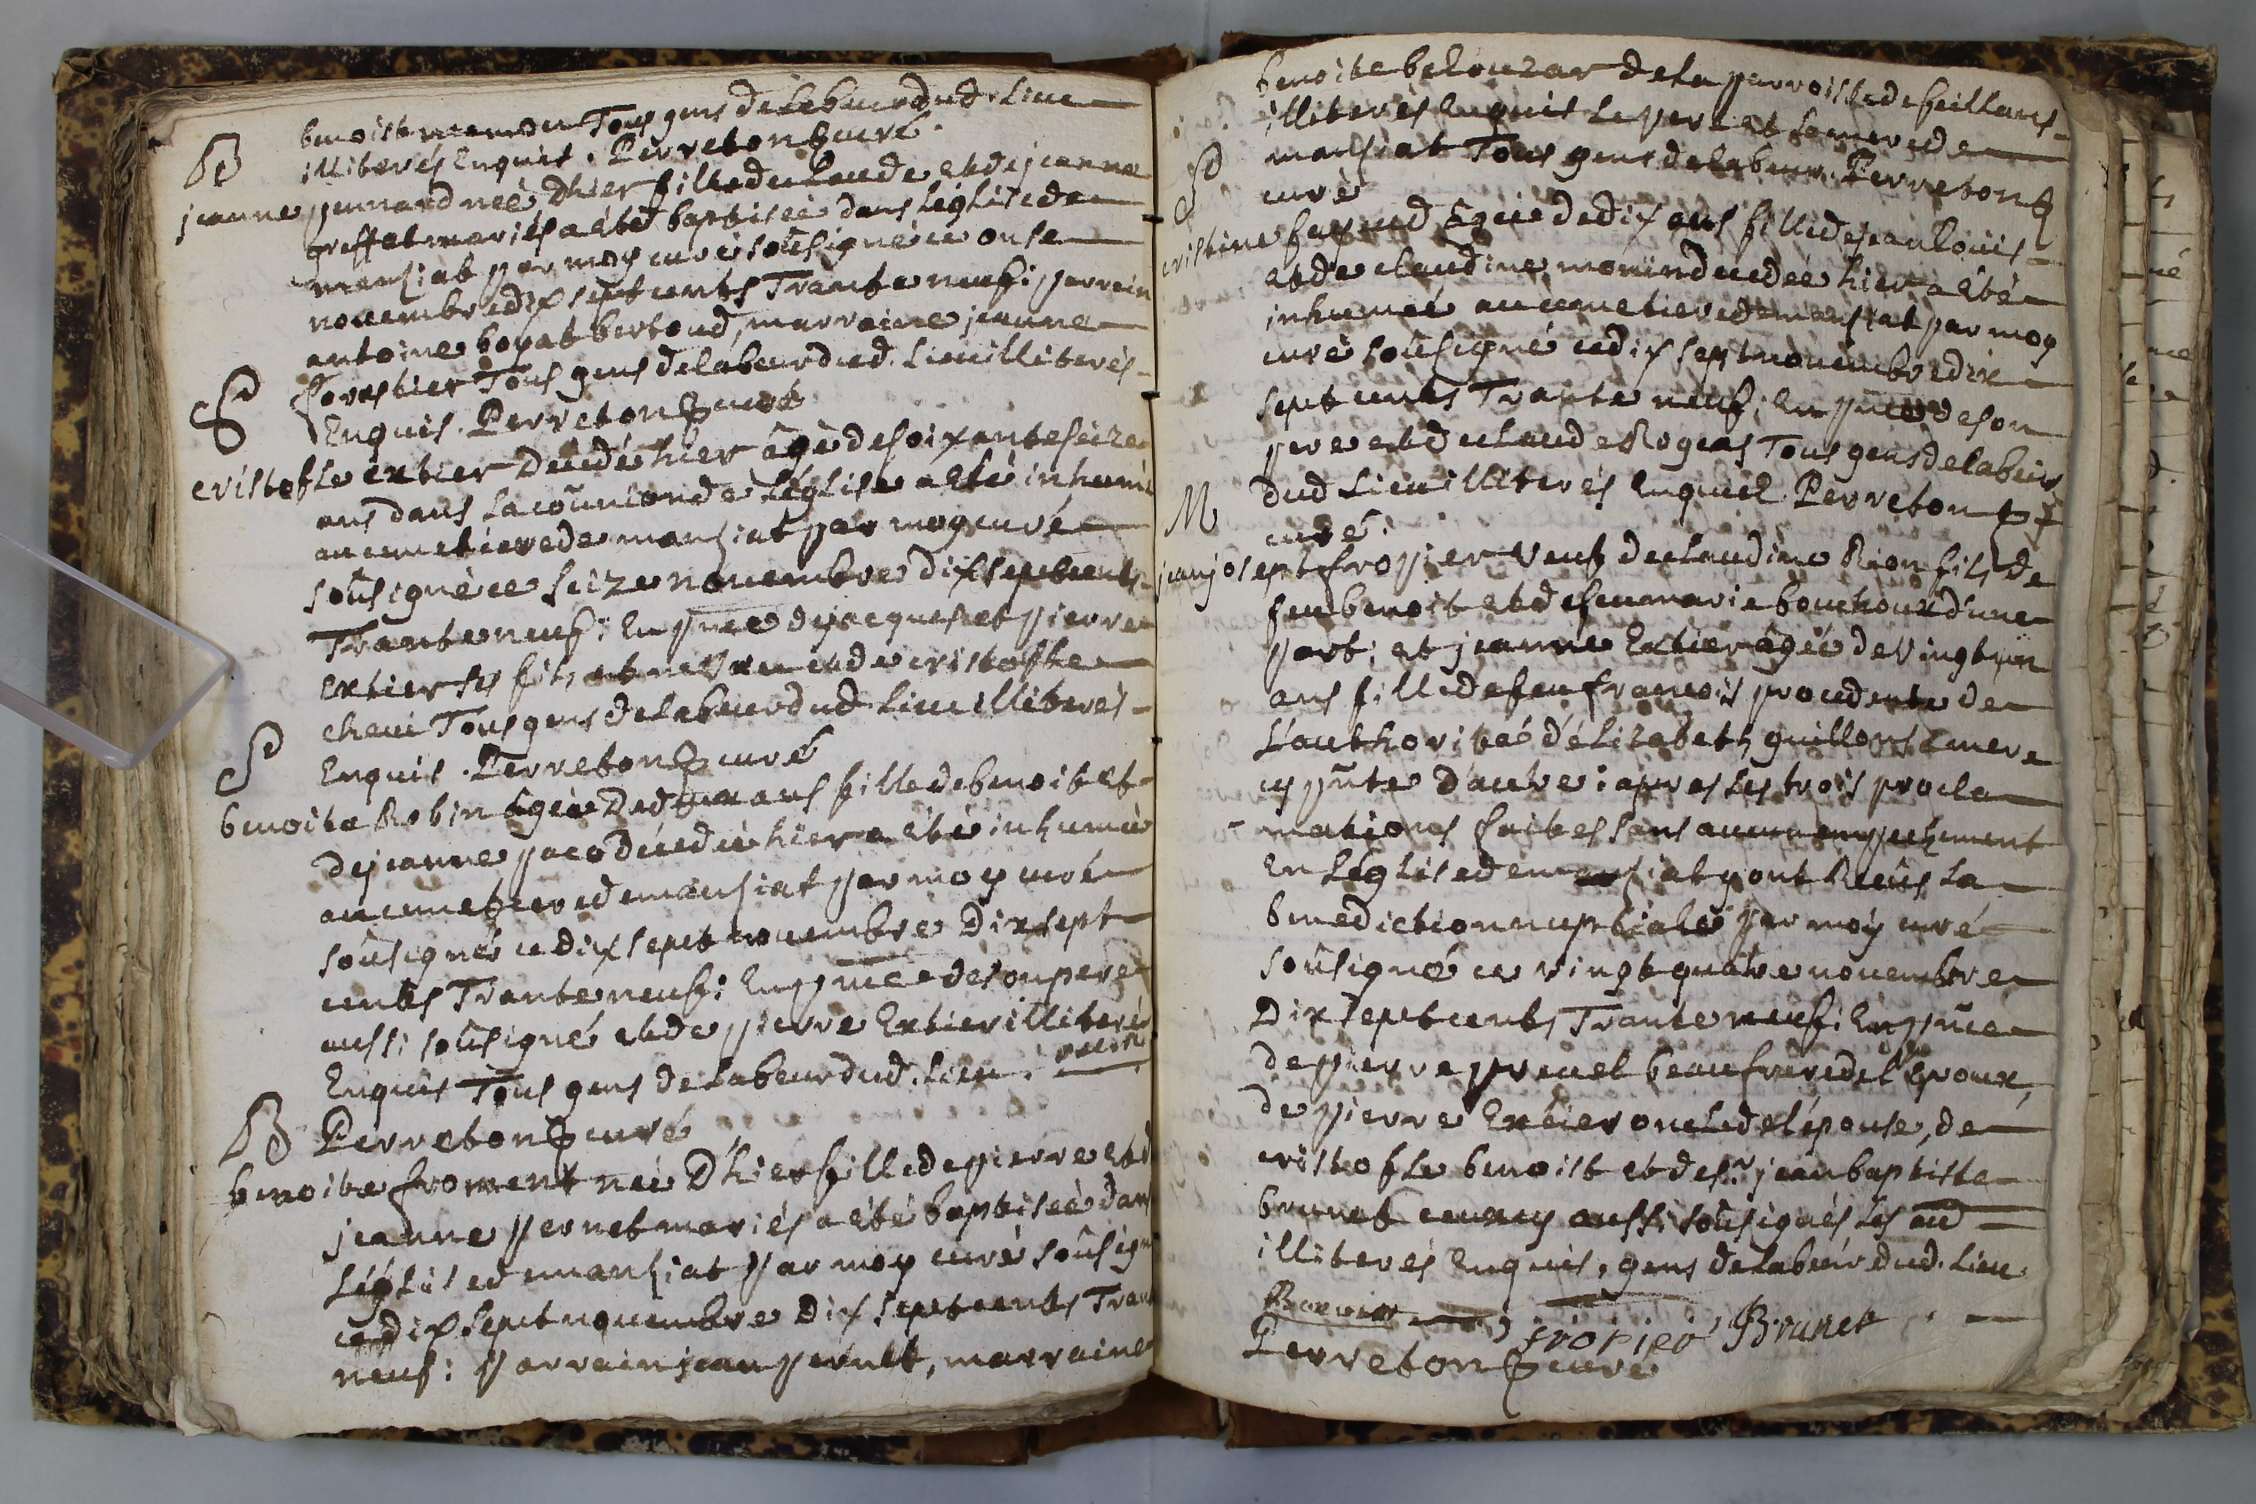 benoist tous gens de labeur dud. Lieu
illiterés Enquis. Perreton curé.
B
jeanne penard née Dhier fille de claude et de jeanne
greffet mariés a été baptisée dans Léglise de
mansiat par moy curé soûsigné ce onse
novembre dix sept cents Trante neuf: parrain
antoine boyat bertoud, marraine jeanne
forestier Tous gens de labeur dud. Lieu illiterés
Enquis. Perreton curé
S
cristofle extier décédé hier âgé de soixante seize
ans dans La coûnion de L'église a été inhumé
au cimetiere de mansiat par moy curé
soûsigné ce seize novembre dix sept cents
Trante neuf: En pñce de jacques et pierre
Extier ses fils et neveu et de cristofle
chevi Tous gens de labeur dud. Lieu illiterés
Enquis. Perreton curé
S
benoite Robin agée De deux ans fille de benoit et
de jeanne pacod décédée hier a été inhumée
au cimetiere de mansiat par moy curé
soûsigné ce dix sept novembre Dix sept
cents Trante neuf: En pñce de son pere
aussi soûsigné et de pierre Extier illiterés
Enquis Tous gens de Labeur dud. Lieu. robin
Perreton curé
B
benoite froment née D'hier fille de pierre et d
jeanne pernet mariés a été baptisée dans
Léglise de mansiat par moy curé soûsigné
ce dix sept novembre dix sept cents Trante
neuf: parrain jean pernet, marraine
benoite belouzar de La parroisse de feillens
illiterés Enquis Le pere et Le mere de
mansiat Tous gens de labeur. Perreton
curé
S
cristine fayend Egée de dix ans fille de jean louis
et de claudine monin décédée hier a été
inhumée au cimetiere de mansiat par moy
curé soûsigné ce dix sept novembre dix
sept cents Trante neuf: En pñce de son
pere et de claude Rogeas Tous gens de labeur
dud Lieu illiterés Enquis. Perreton
curé.
M
jean joseph fropier veuf de claudine Rion fils de
feu benoit et de feu marie bouchoux d'une
part; et jeanne Extier âgée de vingt un
ans fille de feu francois procedente de
L'authorité d'élizabeth guillon sa mere
cy pñte d'autre: apres Les trois procla-
mations faites sans aucun empechement
En L'église de mansiat y ont Recûs La
benediction nuptiale par moy curé
soûsigné ce vingt quatre novembre
Dix sept cents Trante neuf: En pñce
de pierre prevel beaufrere de l'Epoux,
de pierre Extier oncle de l'épouse, de
cristofle benoist et de sr. jean baptiste
brunet aussi soûsignés Les aud
illiterés Enquis, gens de labeur dud. Lieu.
fropier Brunet
Perreton curé